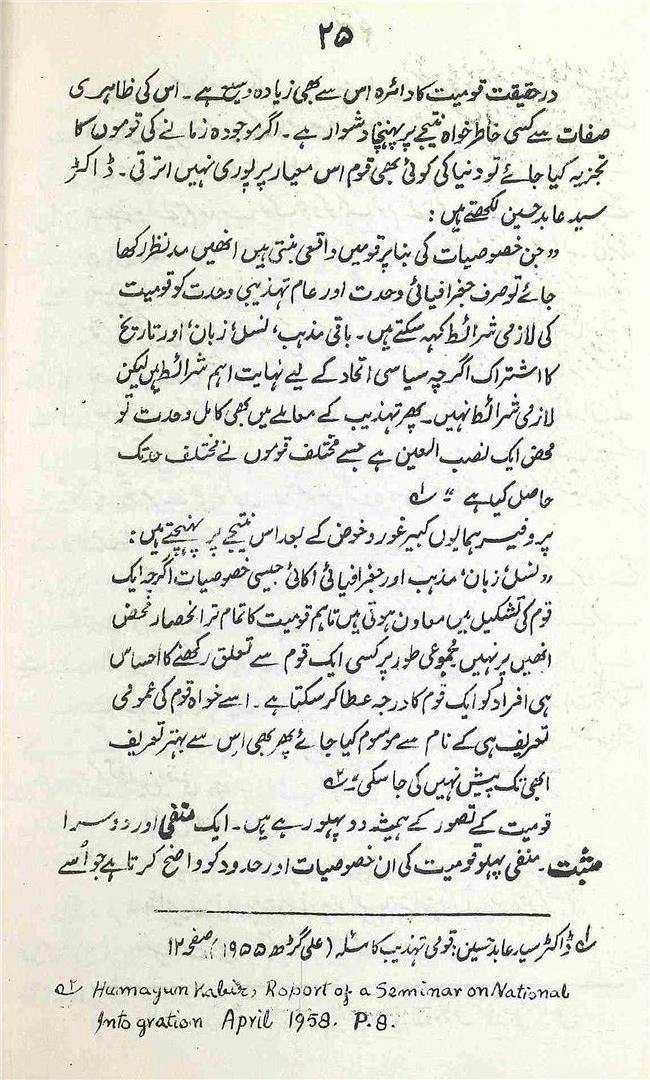 ۲۵
درحقیقت قومیت کا دائرہ اس سے بھی زیادہ وسیع ہے۔ اس کی ظاہری
صفات سے کسی خاطر خواہ نتیجے پر پہنچنا دشوار ہے۔ اگر موجودہ زمانے کی قوموں کا
تجزیہ کیا جائے تو دنیا کی کوئی بھی قوم اس معیار پر پوری نہیں اترتی۔ ڈاکٹر
سید عابد حسین لکھتے ہیں:
"جن خصوصیات کی بنا پر قومیں واقعی بنتی ہیں انھیں مدنظر رکھا
جائے تو صرف جغرافیائی وحدت اور عام تہذیبی وحدت کو قومیت
کی لازمی شرائط کہہ سکتے ہیں۔ باقی مذہب، نسل، زبان، اور تاریخ
کا اشتراک اگرچہ سیاسی اتحاد کے لیے نہایت اہم شرائط ہیں لیکن
لازمی شرائط نہیں۔ پھر تہذیب کے معاملے میں بھی کامل وحدت تو
محض ایک نصب العین ہے جسے مختلف قوموں نے مختلف حد تک
حاصل کیا ہے" ؎۱
پروفیسر ہمایوں کبیر غور و خوض کے بعد اس نتیجے پر پہنچتے ہیں:
"نسل، زبان، مذہب اور جغرافیائی اکائی جیسی خصوصیات اگرچہ ایک
قوم کی تشکیل میں معاون ہوتی ہیں تاہم قومیت کا تمام تر انحصار محض
انھیں پر نہیں مجموعی طور پر کسی ایک قوم سے تعلق رکھنے کا احساس
ہی افراد کو ایک قوم کا درجہ عطا کر سکتا ہے۔ اسے خواہ قوم کی عمومی
تعریف ہی کے نام سے موسوم کیا جائے پھر بھی اس سے بہتر تعریف
ابھی تک پیش نہیں کی جا سکی" ؎۲
قومیت کے تصور کے ہمیشہ دو پہلو رہے ہیں۔ ایک منفی اور دوسرا
مثبت۔ منفی پہلو قومیت کی ان خصوصیات اور حدود کو واضح کرتا ہے جو اُسے
؎۱ ڈاکٹر سید عابد حسین: قومی تہذیب کا مسئلہ (علی گڑھ ۱۹۵۵) صفحہ ۱۲
؎۲ Humayun Kabir, Roport of a Seminar on National
Intogration April 1958. P.8.